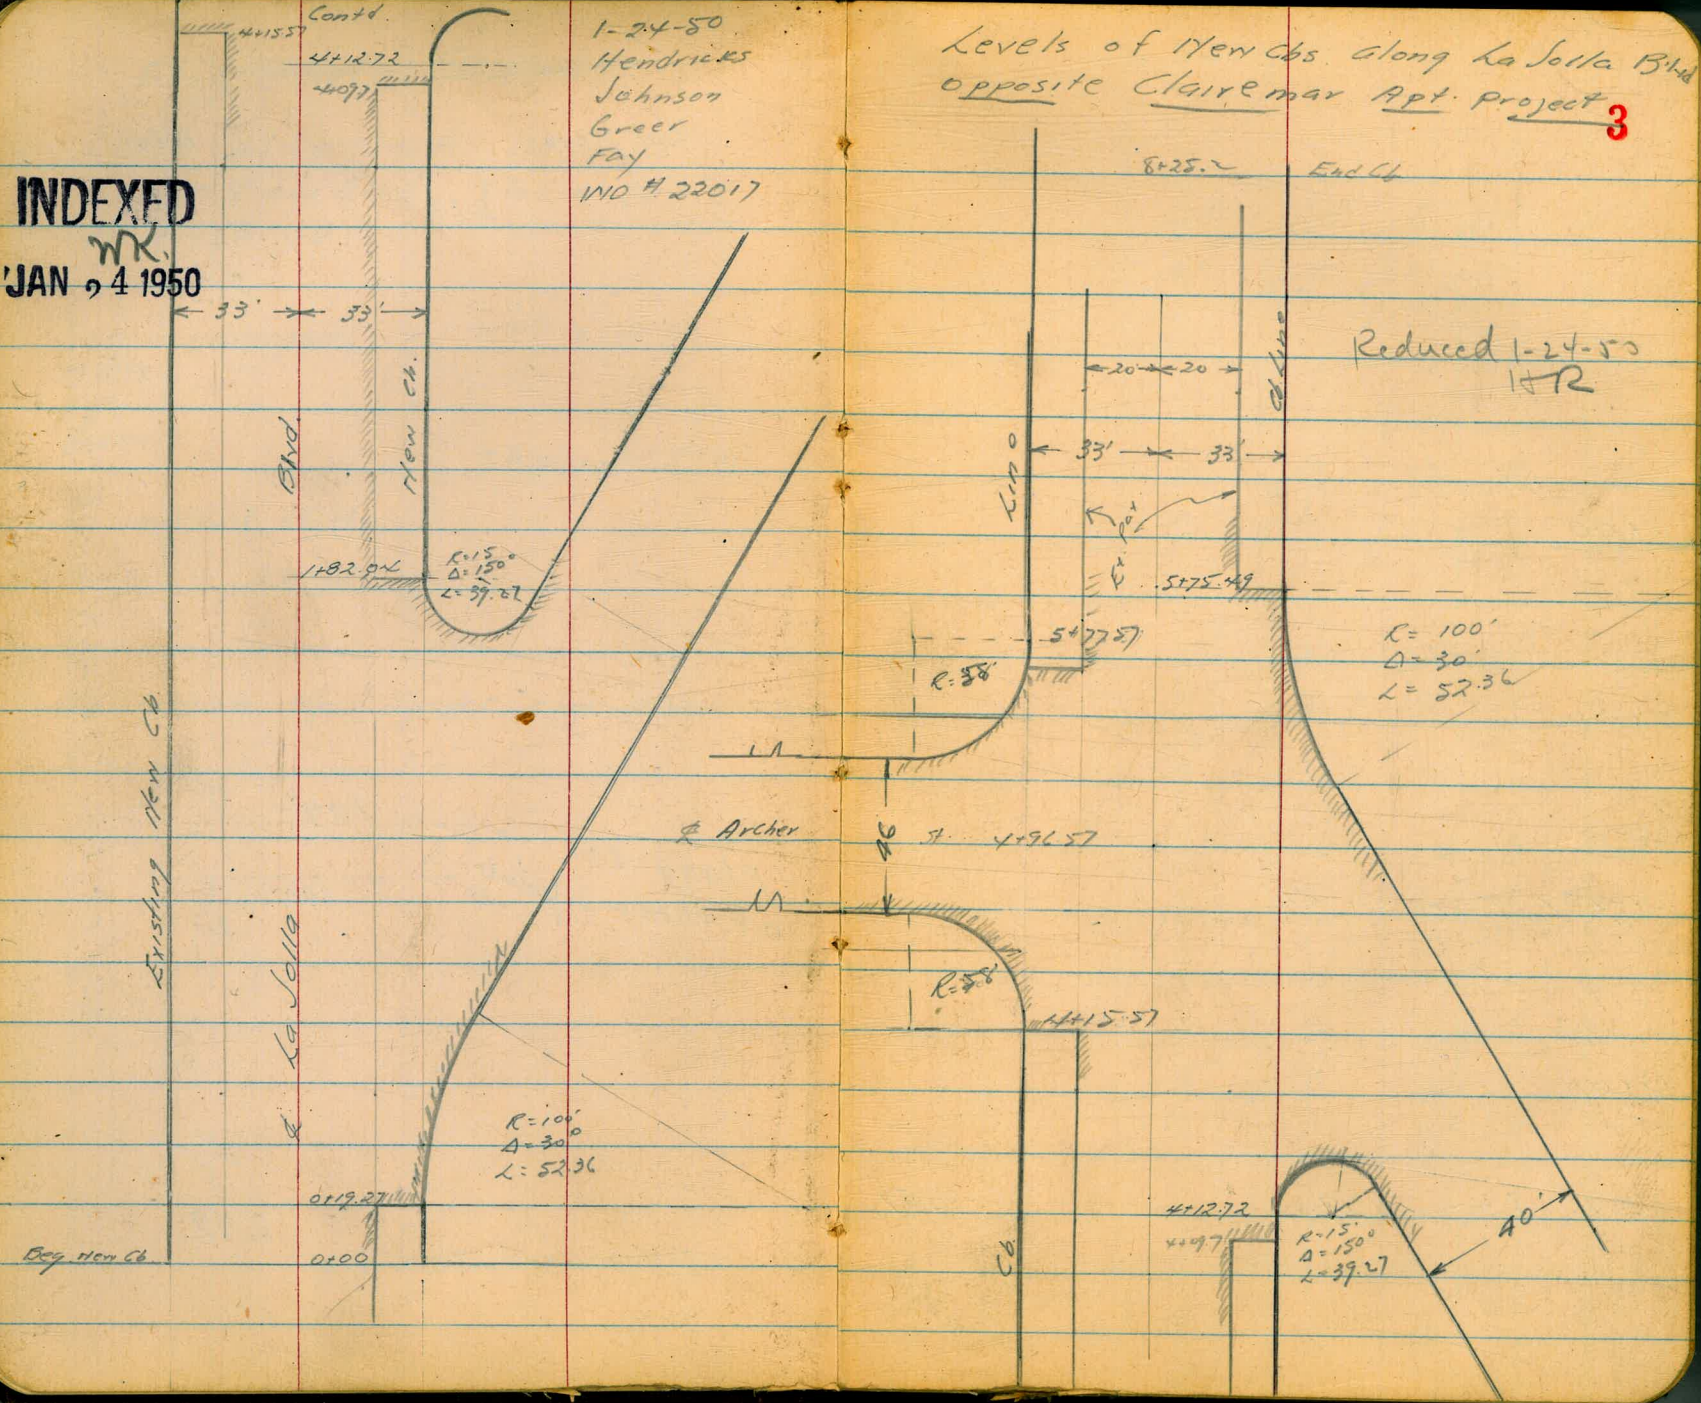 Contd.
4+15.57
4+12.72
4+09.7
1-24-50
Hendricks
Johnson
Greer
Fay
WO # 22017
INDEXED
WK.
JAN 24 1950
33'
33'
Blvd.
New Cb.
1+82.04
R=15
Δ=150°
L=39.27
Existing New Cb.
℄ La Jolla
R=100'
Δ=30°
L=52.36
0+19.27
Beg New Cb
0+00
Levels of New Cbs. along La Jolla Blvd
opposite Clairemar Apt. project
3
8+25.2
End Cb
Reduced 1-24-50
HR
20
20
Cb Line
33'
33'
Line
Ex. Pav
5+75.49
5+77.57
R=58'
R= 100'
Δ= 30°
L= 52.36
℄ Archer St. 4+96.57
46
R=58'
4+15.57
4+12.72
4+09.7
R=15'
Δ=150°
L=39.27
40'
Cb